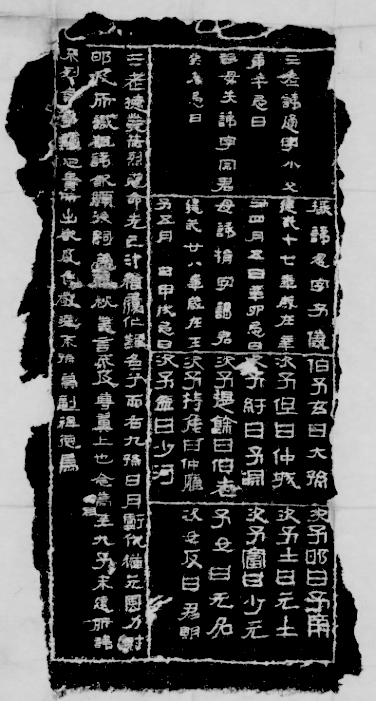 三老諱通字小父
庚午忌日
祖母失諱字宗君
癸未忌日
掾諱忽字子儀
建武十七年歲在辛
丑四月五日辛卯忌日
母諱捐字謁君
建武廿八年歲在壬
子五月十日甲戌忌日
伯子玄曰大孫
次子但曰仲城
次子紆曰子淵
次子提餘曰伯老
次子持侯曰仲廱
次子盈曰少河
次子邯曰子南
次子士曰元士
次子富曰少元
子女曰无名
次女反曰君明
三老德業赫烈克命先己汁稽履化難名兮而右九孫日月虧代猶元風力射
邯及所識祖諱欽顯後嗣蓋春秋義言不及尊翼上也念高祖至九子未遠所諱
不列言事觸忌貴所出嚴及焦敬曉末孫冀副祖德焉